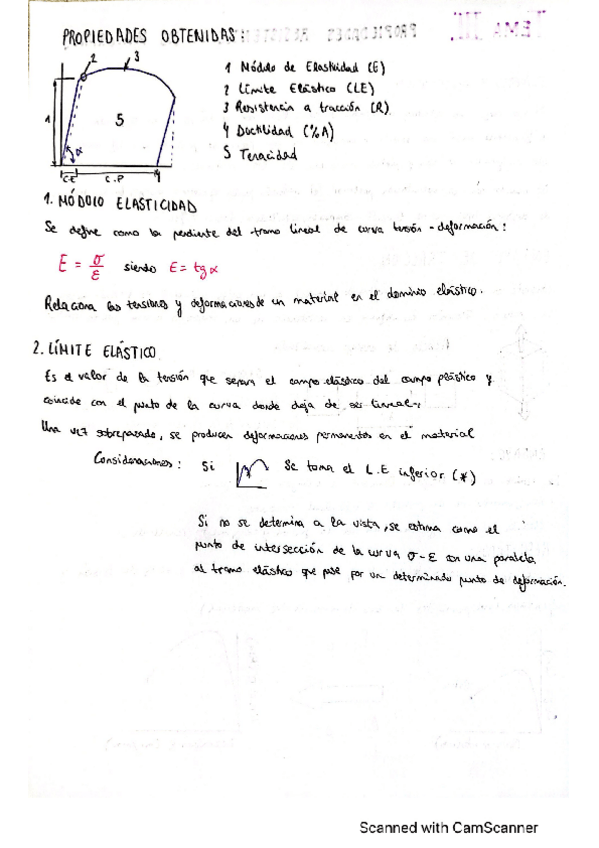 PROPIEDADES OBTENIDAS
1 Módulo de Elasticidad (E)
2 Límite Elástico (LE)
3 Resistencia a tracción (R)
4 Ductilidad (%A)
5 Tenacidad
1
2
3
5
α
CE
C.P
4
1. MÓDULO ELASTICIDAD
Se define como la pendiente del tramo lineal de curva tensión - deformación:
E = σ/ε siendo E = tg α
Relaciona las tensiones y deformaciones de un material en el dominio elástico.
2. LÍMITE ELÁSTICO
Es el valor de la tensión que separa el campo elástico del campo plástico y
coincide con el punto de la curva donde deja de ser lineal.
Una vez sobrepasado, se producen deformaciones permanentes en el material
Consideraciones: Si se toma el L.E inferior (*)
Si no se determina a la vista, se estima como el
punto de intersección de la curva σ - ε con una paralela
al tramo elástico que pase por un determinado punto de deformación.
Scanned with CamScanner